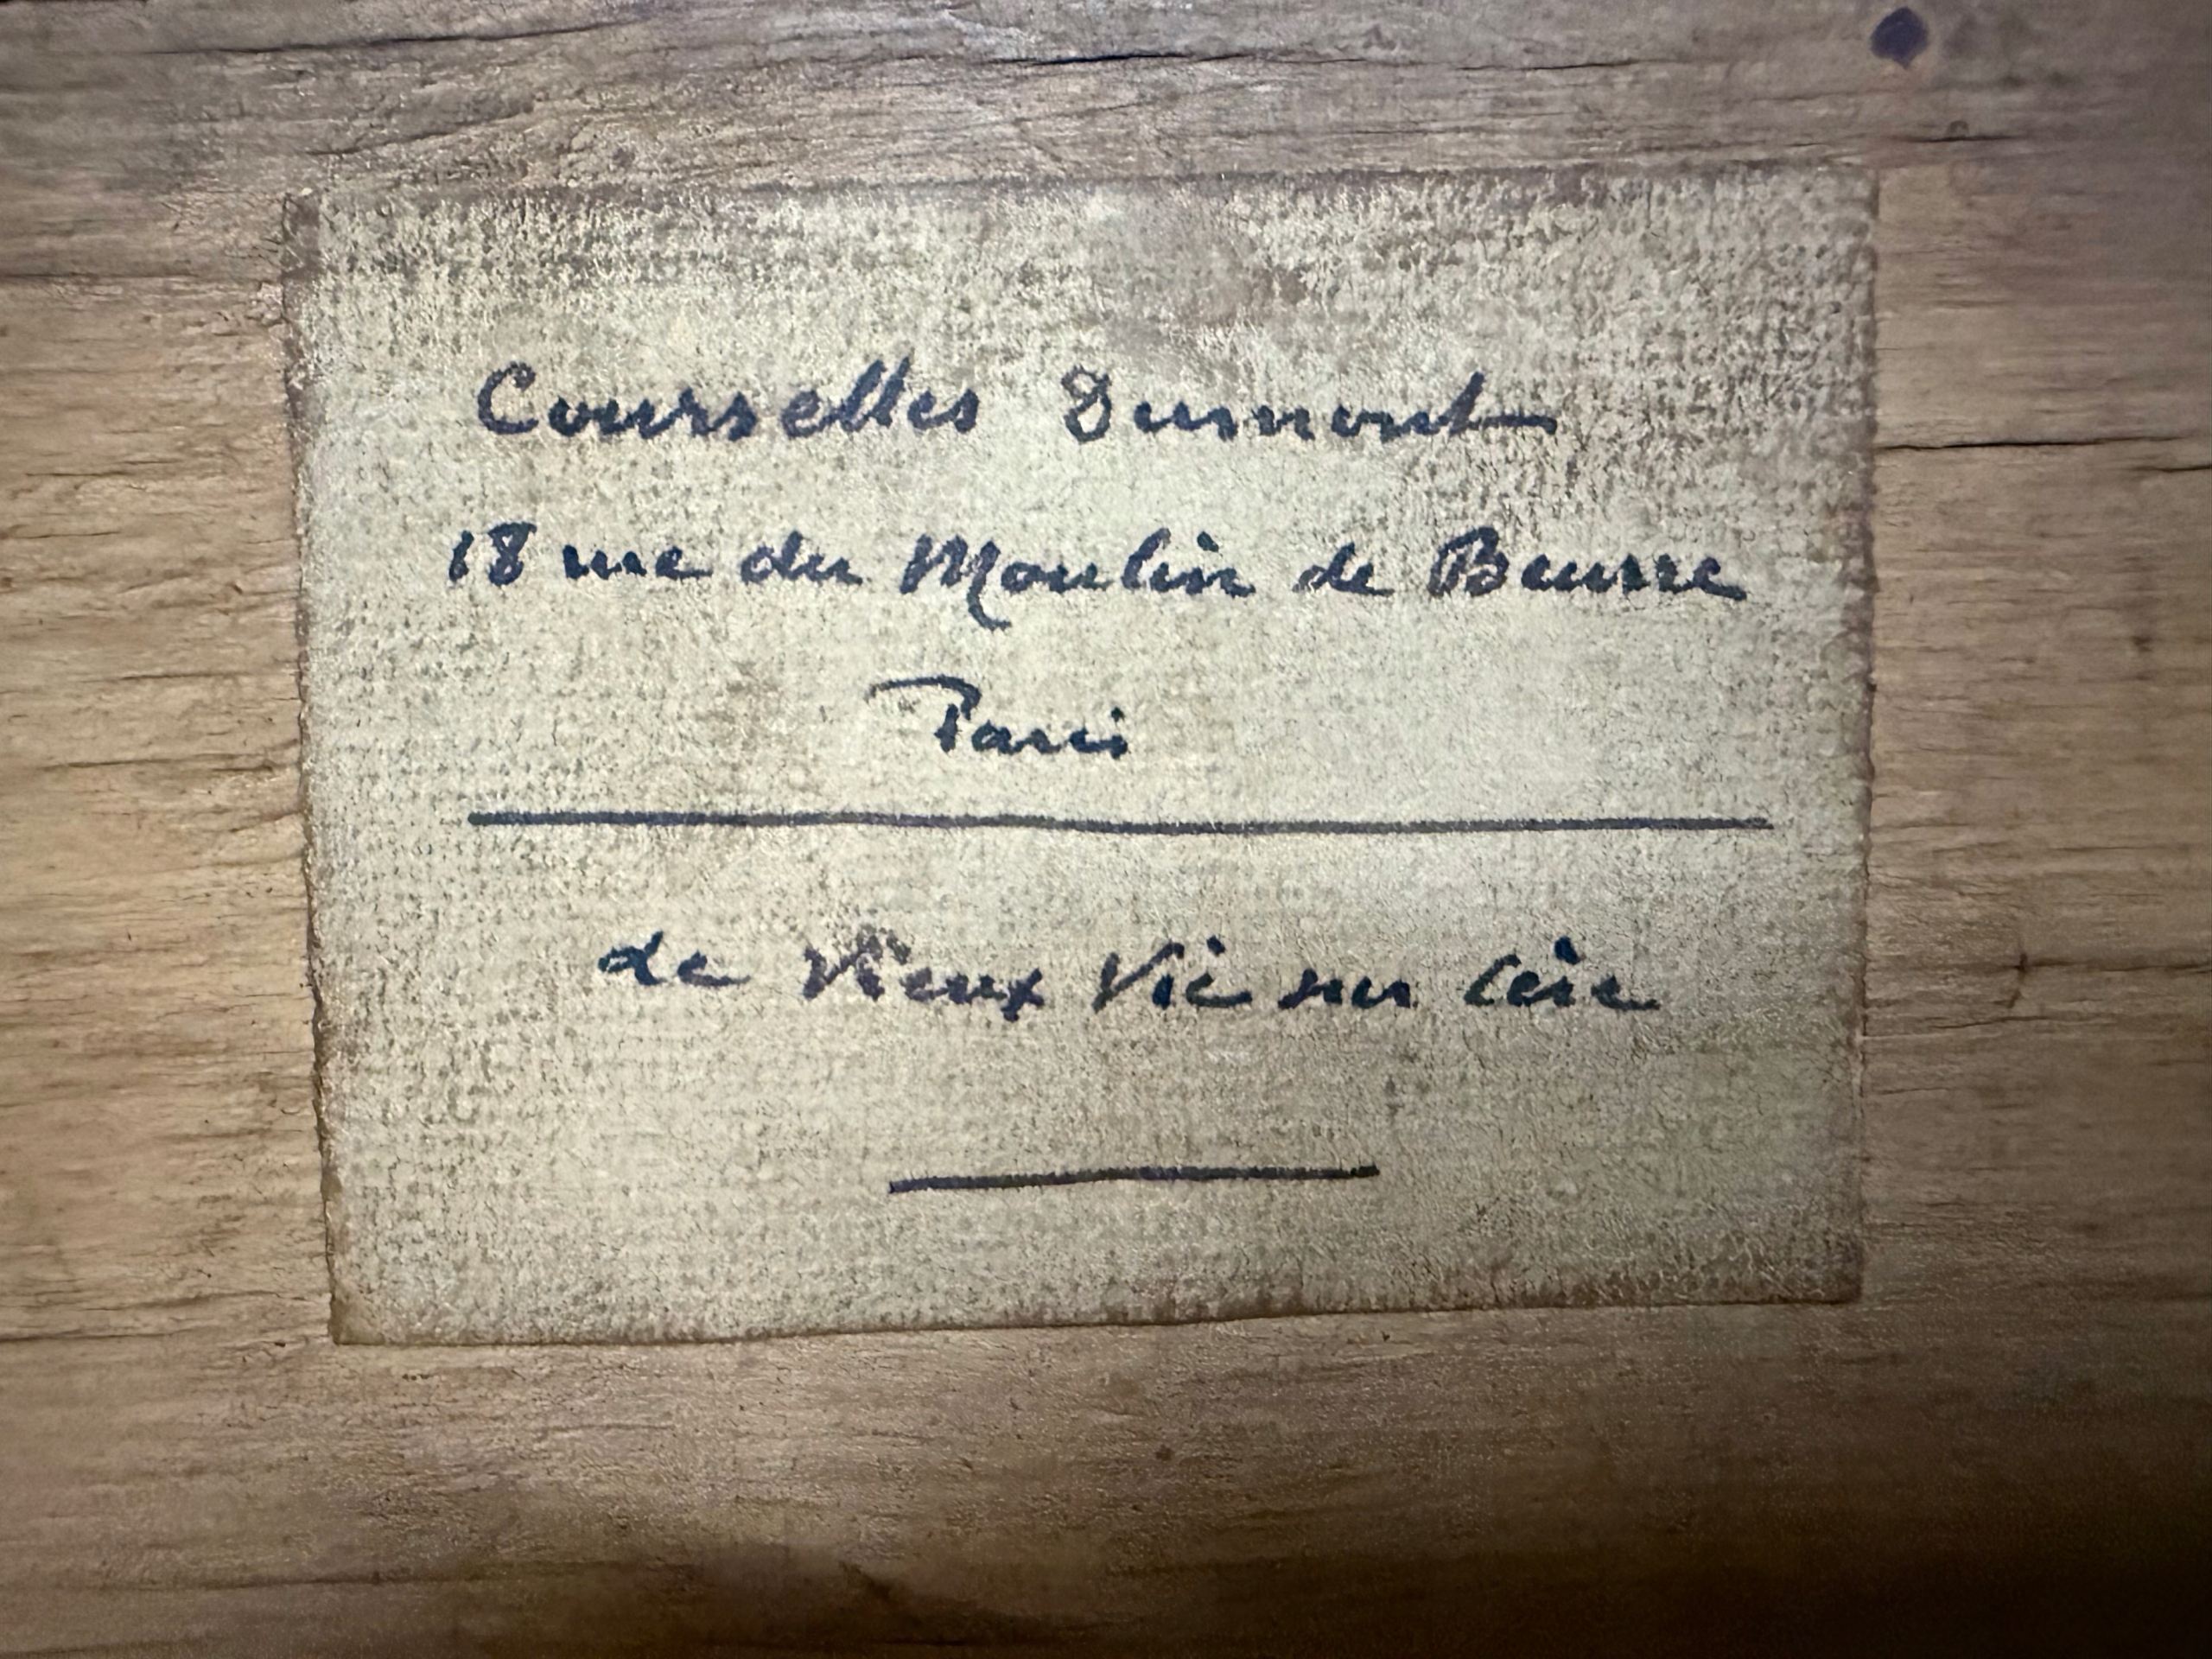 Courselles Dumont
18 rue du Moulin de Beurre
Paris
le Vieux Vic sur Cère